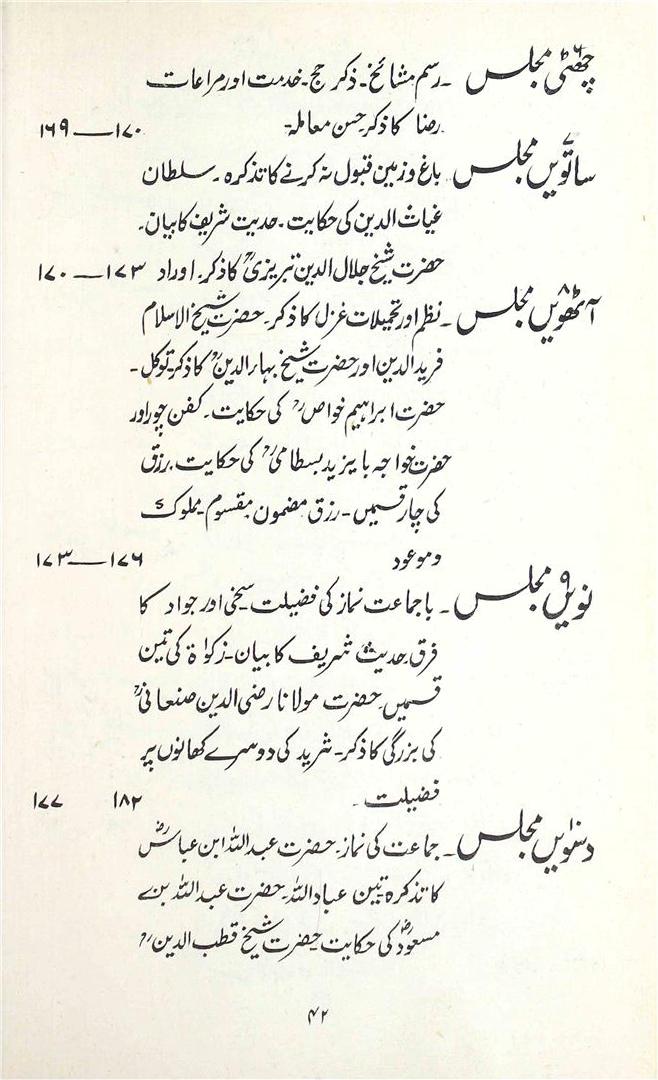 چھٹی ۶ مجلس ۔ رسم مشائخ۔ ذکر حج۔ خدمت اور مراعات
رضا کا ذکر۔ حسن معاملہ۔ ۱۷۰ — ۱۶۹
ساتویں ۷ مجلس باغ و زمین قبول نہ کرنے کا تذکرہ۔ سلطان
غیاث الدین کی حکایت۔ حدیث شریف کا بیان۔
حضرت شیخ جلال الدین تبریزیؒ کا ذکر۔ اوراد ۱۷۳ — ۱۷۰
آٹھویں ۸ مجلس ۔ نظم اور تخیلات غزل کا ذکر۔ حضرت شیخ الاسلام
فرید الدین اور حضرت شیخ بہاء الدینؒ کا ذکر۔ توکل۔
حضرت ابراہیم خواصؒ کی حکایت۔ کفن چور اور
حضرت خواجہ بایزید بسطامیؒ کی حکایت۔ رزق
کی چار قسمیں۔ رزق مضمون، مقسوم، مملوک
و موعود ۱۷۶ — ۱۷۳
نویں ۹ مجلس ۔ با جماعت نماز کی فضیلت۔ سخی اور جواد کا
فرق۔ حدیث شریف کا بیان۔ زکوٰۃ کی تین
قسمیں۔ حضرت مولانا رضی الدین صنعانیؒ
کی بزرگی کا ذکر۔ ثرید کی دوسرے کھانوں پر
فضیلت۔ ۱۸۲ ۱۷۷
دسویں ۱۰ مجلس ۔ جماعت کی نماز۔ حضرت عبداللہ ابن عباسؓ
کا تذکرہ۔ تین عباد اللہ۔ حضرت عبداللہ بن
مسعودؓ کی حکایت۔ حضرت شیخ قطب الدینؒ
۴۲